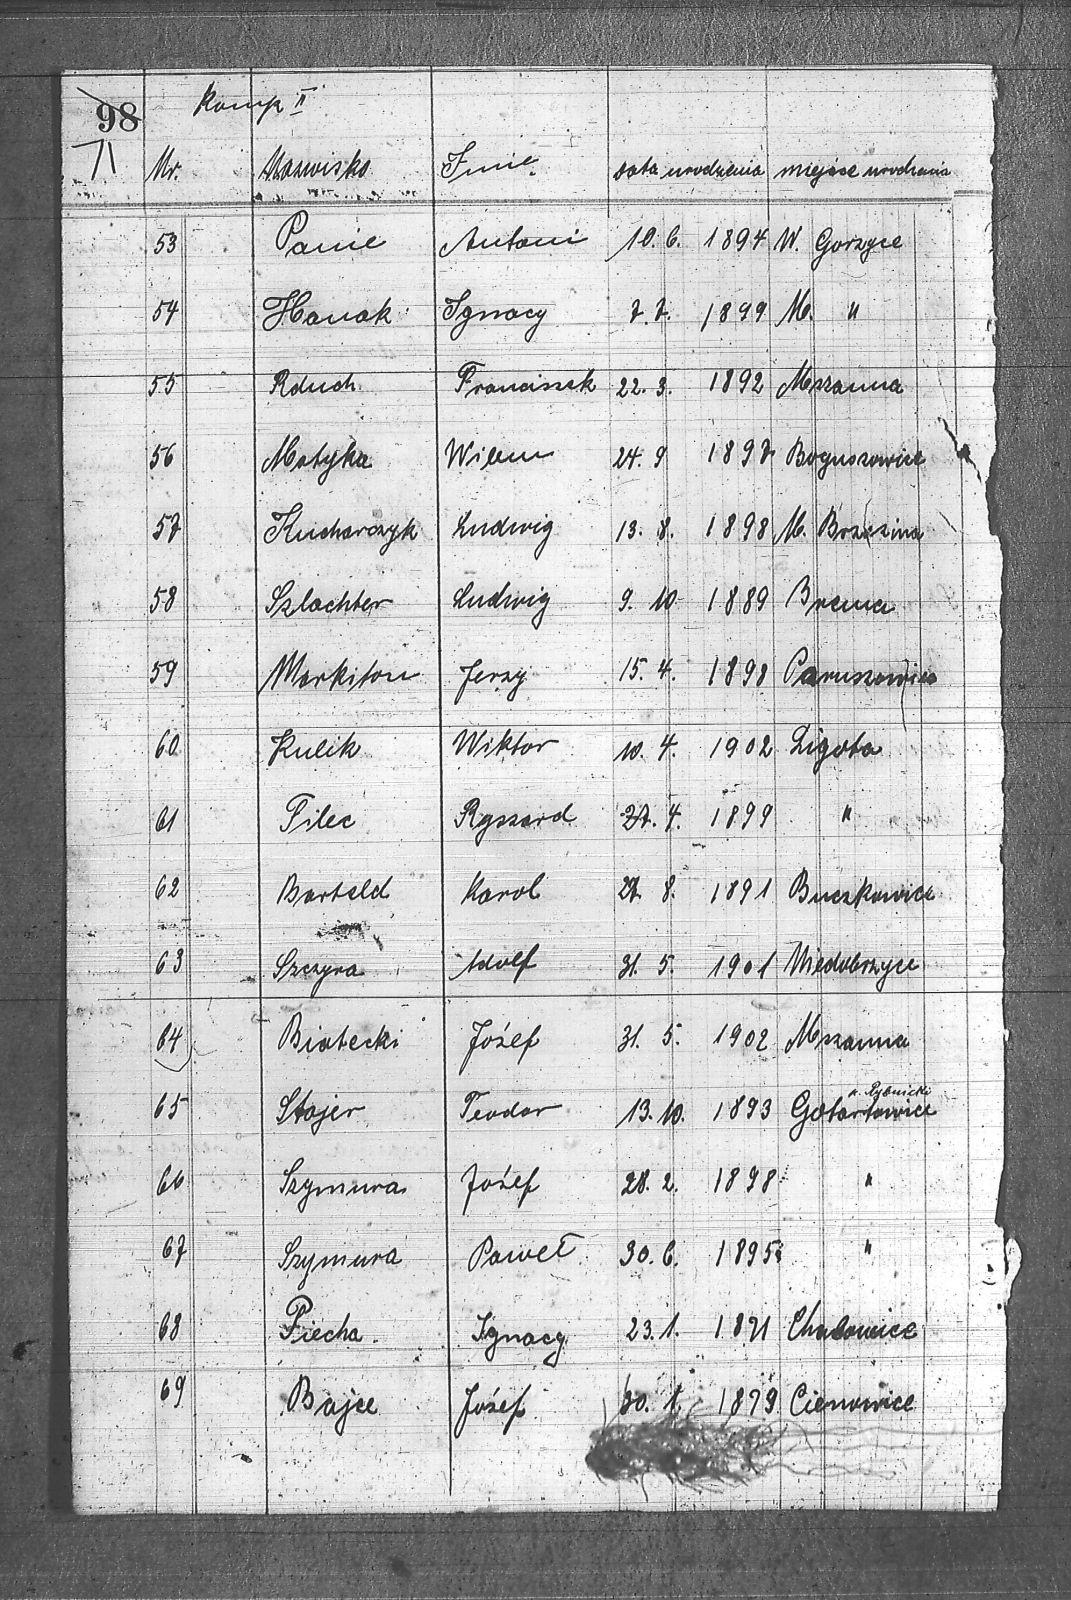 98
71
Komp II
Nr. Nazwisko Imię. data urodzenia miejsce urodzenia
53 Panic Antoni 10. 6. 1894 W. Gorzyce
54 Hanak Ignacy 7. 7. 1899 M. "
55 Rduch Franciszek 22. 3. 1892 Mszanna
56 Motyka Wilem 24. 9 1897 Boguszowice
57 Kucharczyk Ludwig 13. 8. 1898 M. Brzezina
58 Szlachter Ludwig 9. 10 1889 Brema
59 Markiton Jerzy 15. 4. 1898 Paruszowice
60 Kulik Wiktor 10. 4. 1902 Ligota
61 Pilec Ryszard 27. 4. 1899 "
62 Barteld Karol 27 8. 1891 Buczkowice
63 Szczyra Adolf 31. 5. 1901 Niedobrzyce
64 Biatecki Józef 31. 5. 1902 Mszanna
p. Rybnicki
65 Stajer Teodor 13. 10. 1893 Gotartowice
66 Szymura Józef 28. 2. 1898 "
67 Szymura Paweł 30. 6. 1895 "
68 Piecha Ignacy 23. 1. 1871
69 Bajce Józef 30. 1. 1879 Cienowice